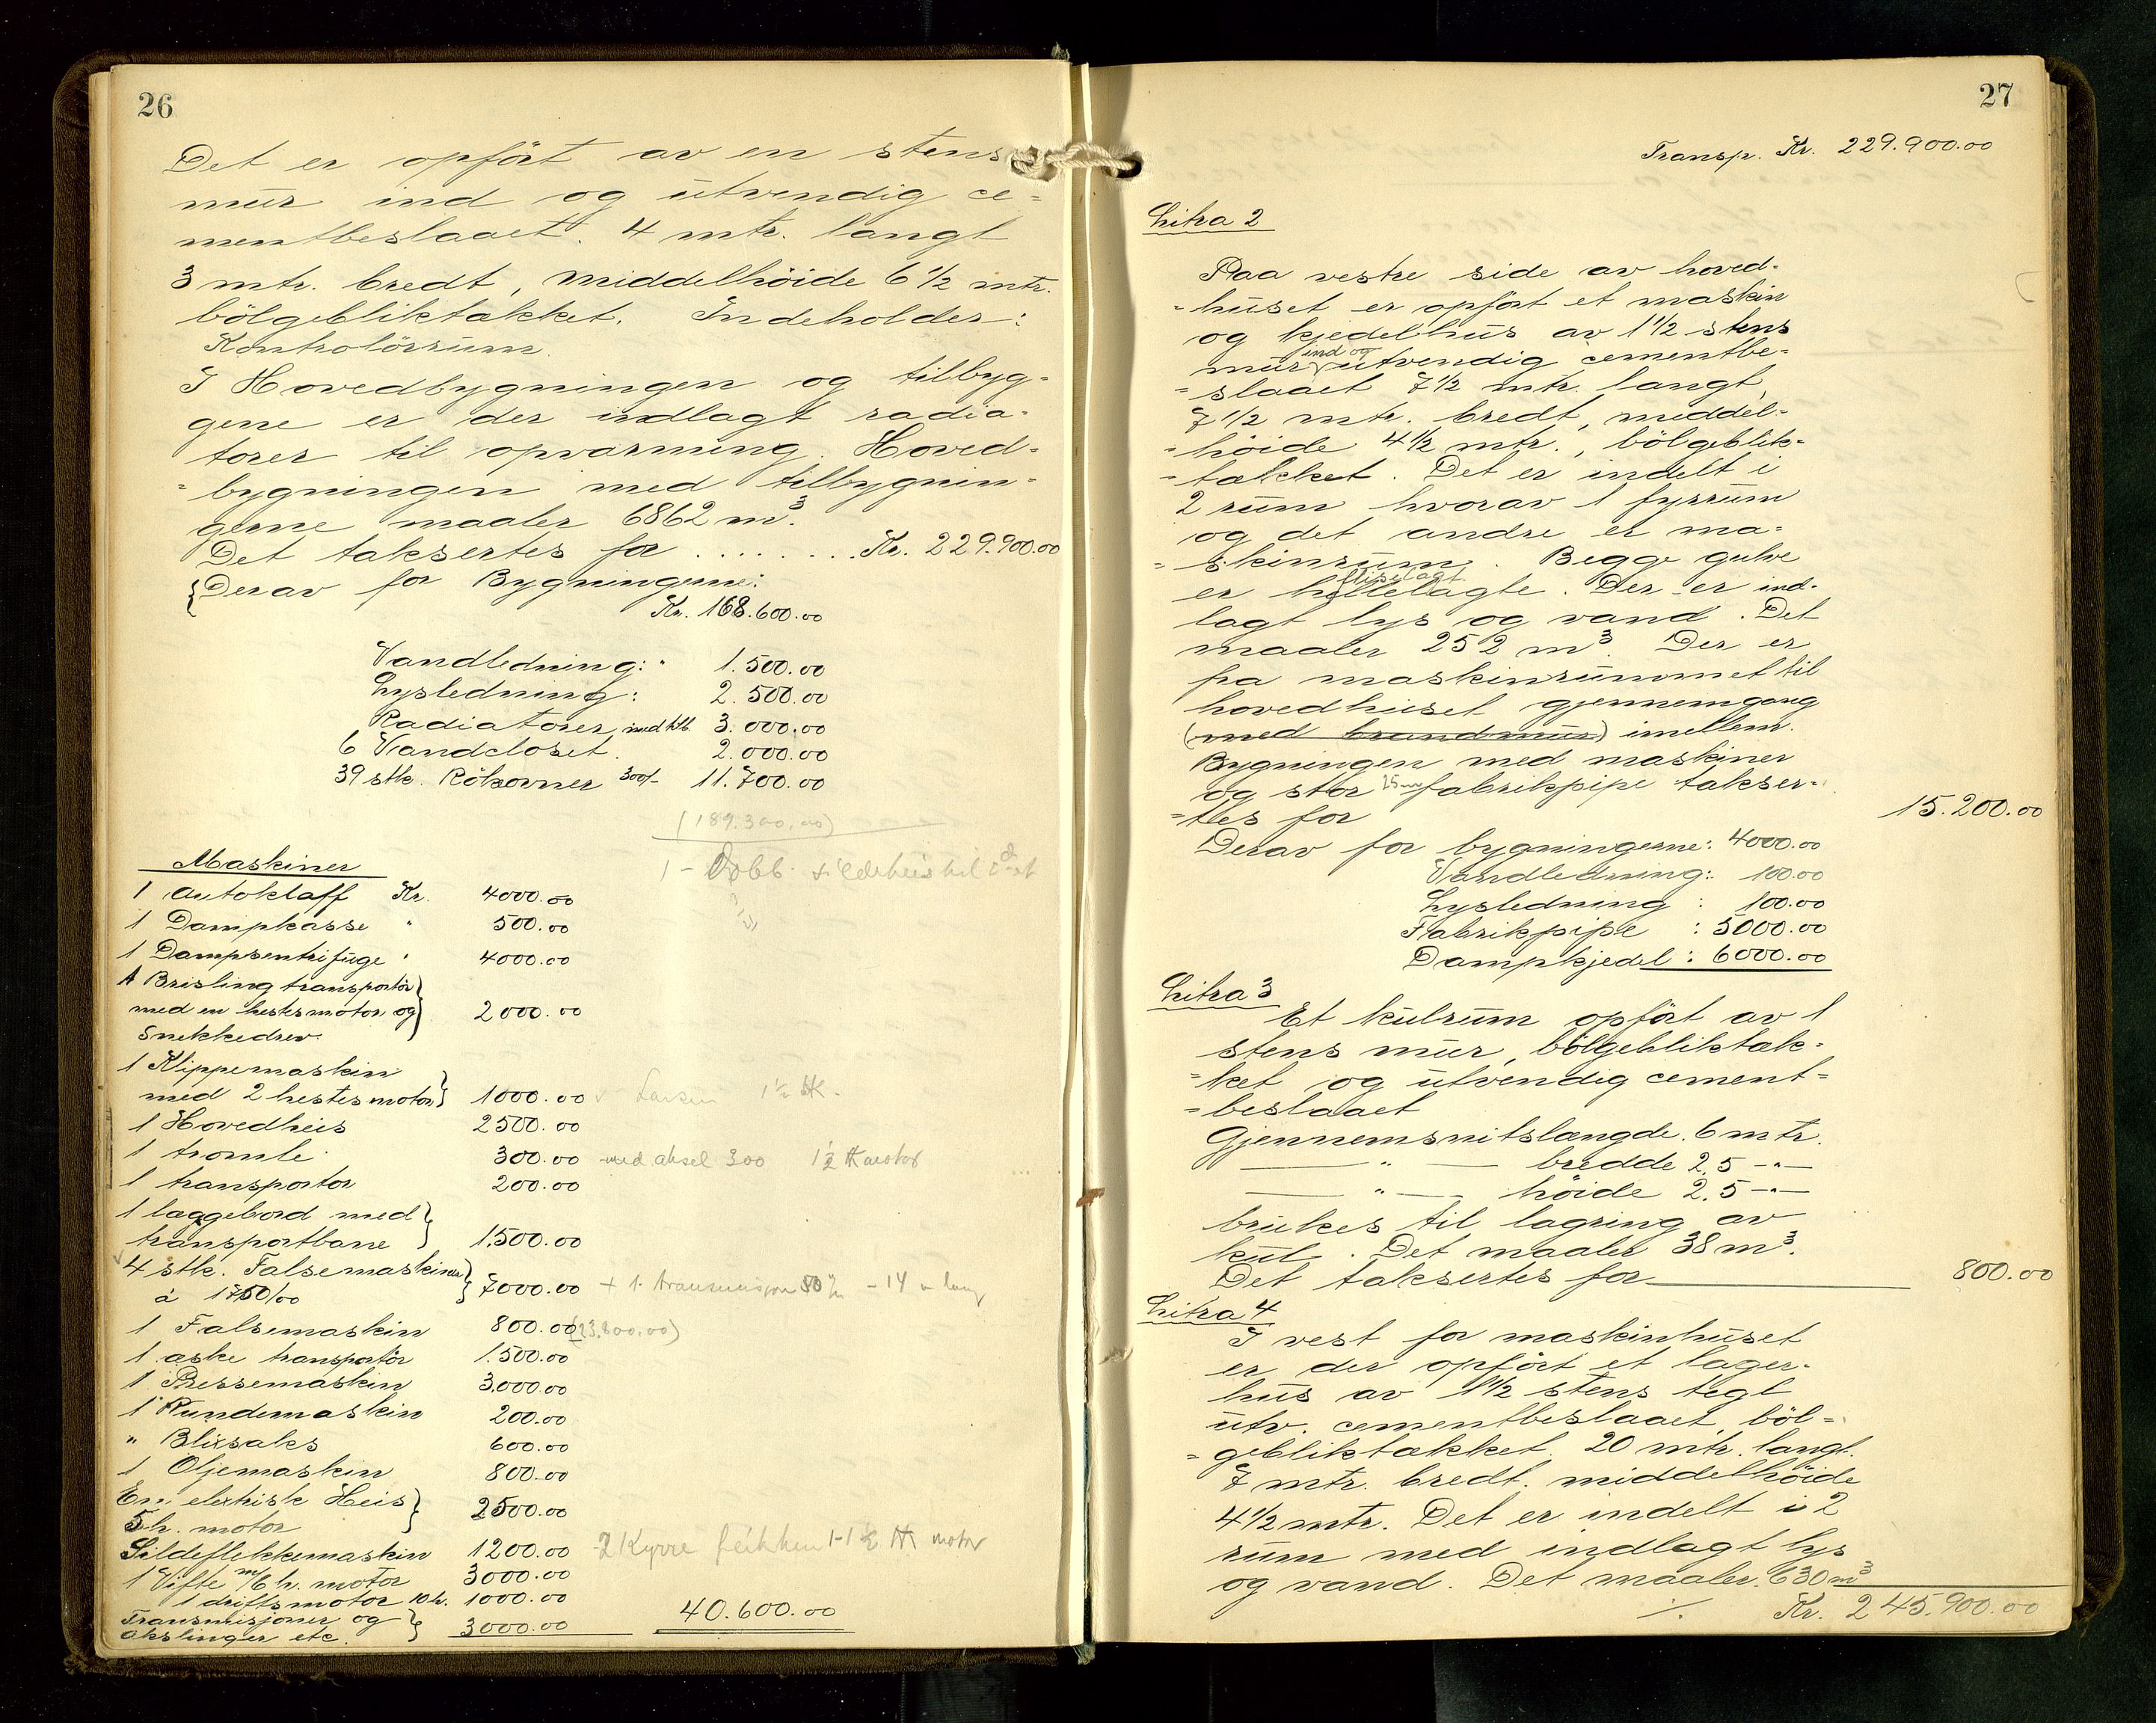 26
Det er opført av en stens
mur ind og utvendig ce=
mentbeslaaet. 4 mtr. langt
3 mtr. bredt, middelhöide 6 1/2 mtr.
bölgebliktakket. Indeholder:
Kontrolörrum.
I Hovedbygningen og tilbyg=
gene er der indlagt radia=
torer til opvarming. Hoved=
=bygningen med tilbygnin=
gerne maaler 6862 m³.
Det taksertes for ........ Kr. 229.900.00
{Derav for Bygningerne:
Kr. 168.600.00
Vandledning: " 1.500.00
Lysledning: 2.500.00
Radiatorer, 3.000.00
6 Vandcloset. 2.000.00
39 stk. Rökovner 300/- 11.700.00
(189.300.00)
Maskiner
1 Autoklaff Kr. 4000.00
1 Dampkasse " 500.00
1 Dampsentrifuge " 4000.00
1 Brislingtransportör
med en hestes motor og 2000.00
Snekkedrev.
1 Klippemaskin
med 2 hestes motor} 1000.00 1 1/2 HK.
1 Hovedheis 2500.00
1 tromle 300.00 med aksel 300 1 1/2 HK motor
1 transportör 200.00
1 læggebord med
transportbane } 1.500.00
4 stk. Falsemaskiner
à 1750/00 } 7000.00 + 1 - 14 m lang
1 Falsemaskin 800.00 (23.800.00)
1 æske transportör 1.500.00
1 Pressemaskin 3.000.00
1 Rundemaskin 200.00
" Blixsaks 600.00
1 Oljemaskin 800.00
En elektrisk Heis
5 h. motor } 2500.00
Sildeflekkemaskin 1200.00 2 Kyrre 1-1 1/2 HK motor
1 Vifte m/6 h. motor 3000.00
1 driftsmotor 10 h. 1000.00
Transmisjoner og
akslinger etc. } 3000.00 40.600.00
27
Transp. Kr. 229.900.00
Litra 2
Paa vestre side av hoved=
=huset er opført et maskin
og kjedelhus av 1 1/2 stens
mur ind og utvendig cementbe=
=slaaet 7 1/2 mtr. langt,
7 1/2 mtr. bredt, middel=
=höide 4 1/2 mtr., bölgeblik=
=takket. Det er indelt i
2 rum hvorav 1 fyrrum
og det andre er ma=
=skinrum. Begge gulve
fliselagt
er hellelagte. Der er ind=
lagt lys og vand. Det
maaler 252 m³. Der er
pa maskinrummet til
hovedhuset gjennemgang
(med brandmur) imellem.
Bygningen med maskiner
og stor 15 m fabrikpipe takser=
=tes for 15.200.00
Derav for bygningerne: 4000.00
Vandledning: 100.00
Lysledning : 100.00
Fabrikpipe : 5000.00
Dampkjedel : 6000.00
Litra 3
Et kulrum opført av 1
stens mur, bölgebliktak=
=ket og utvendig cement=
=beslaaet
Gjennemsnitslængde. 6 mtr.
— " — bredde 2,5 - " -
— " — höide 2,5 - " -
brukes til lagring av
kul. Det maaler 38 m³.
Det taksertes for 800.00
Litra 4
I vest for maskinhuset
er der opført et lager=
hus av 1 1/2 stens tegl
utv. cementbeslaaet, böl=
=gebliktakket. 20 mtr. langt.
7 mtr. bredt. middelhöide
4 1/2 mtr. Det er indelt i 2
rum med indlagt lys
og vand. Det maaler. 630 m³
./. Kr. 245.900.00